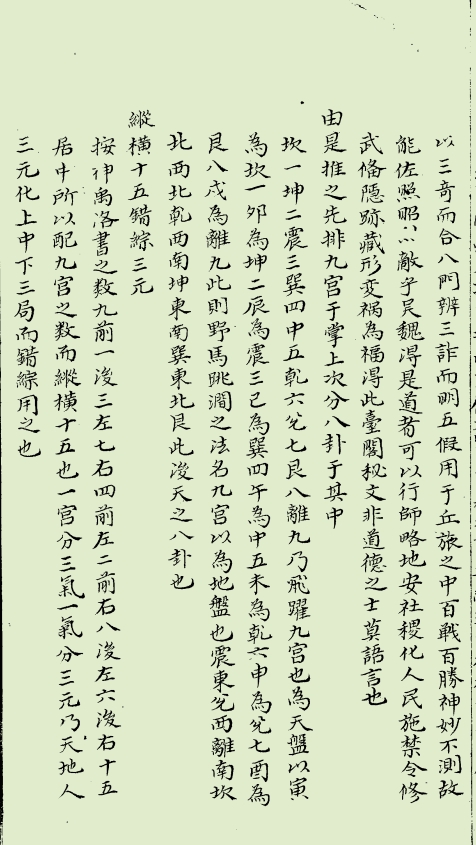 以三竒而合八門辨三詐而明五假用于丘旅之中百戰百勝神妙不測故
能佐照昭以敵孚民魏淂是道者可以行師略地安社稷化人民施禁令修
武俻隠跡藏形変禍為福淂此臺閣秘文非道德之士莫語言也
由是推之先排九宫于掌上次分八卦于其中
坎一坤二震三巽四中五乾六兊七艮八離九乃飛躍九宫也為天盤以寅
為坎一夘為坤二辰為震三巳為巽四午為中五未為乾六申為兊七酉為
艮八戌為離九此則野馬跳澗之法名九宫以為地盤也震東兊西離南坎
北西北乾西南坤東南巽東北艮此後天之八卦也
縱横十五錯綜三元
按神禹洛書之数九前一後三左七右四前左二前右八後左六後右十五
居中所以配九宫之数而縱横十五也一宫分三氣一氣分三元乃天地人
三元化上中下三局而錯綜用之也